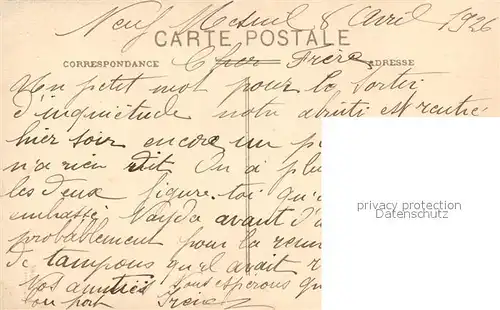 Neuf Mesnil 8 Avril 1926
CARTE POSTALE
CORRESPONDANCE ADRESSE
Cher Frère
Un petit mot pour te sortir
d'inquiétude notre abruti est rentré
hier soir encore un
n'a rien dit On a
les deux figure-toi
embrassé avant
probablement pour la
de tampons qu'el avait
Nos amitiés Nous espérons
privacy protection
Datenschutz